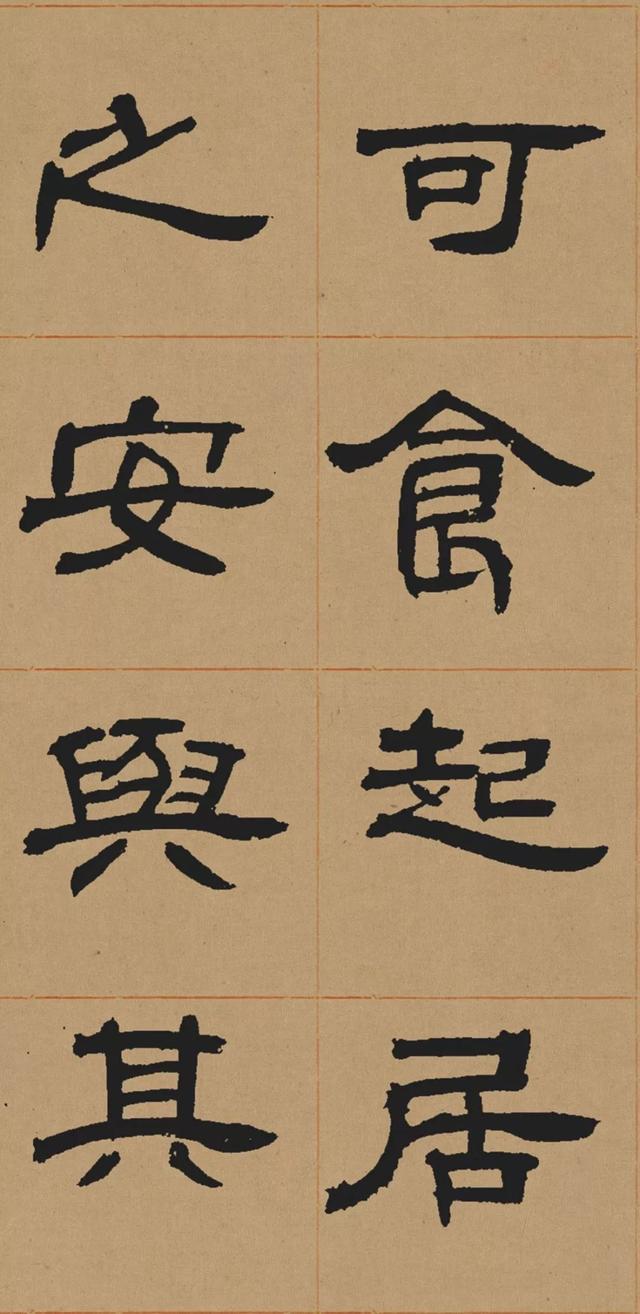 可食起居
之安與其